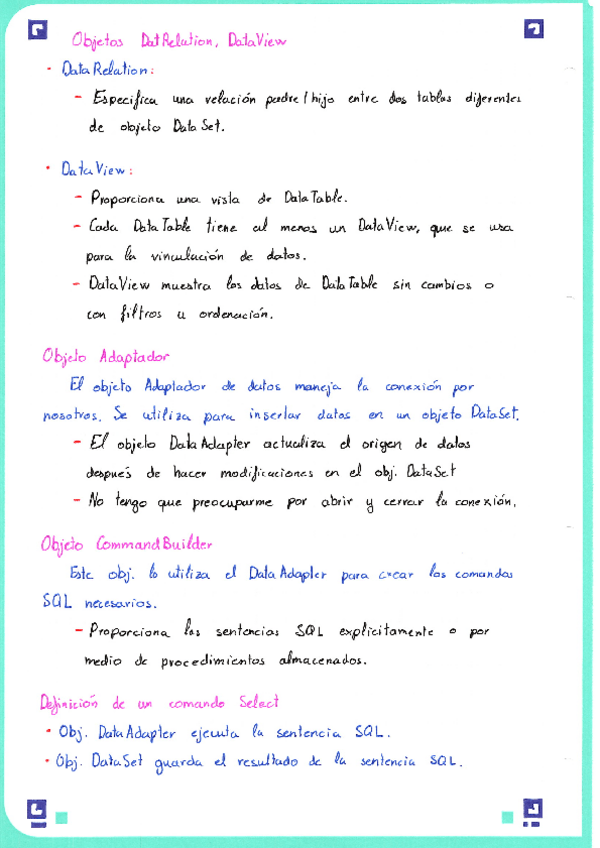 Objetos DatRelation, DataView
· DataRelation:
- Especifica una relación padre/hijo entre dos tablas diferentes
de objeto DataSet.
· DataView:
- Proporciona una vista de DataTable.
- Cada DataTable tiene al menos un DataView, que se usa
para la vinculación de datos.
- DataView muestra los datos de DataTable sin cambios o
con filtros u ordenación.
Objeto Adaptador
El objeto Adaptador de datos maneja la conexión por
nosotros. Se utiliza para insertar datos en un objeto DataSet.
- El objeto DataAdapter actualiza el origen de datos
después de hacer modificaciones en el obj. DataSet
- No tengo que preocuparme por abrir y cerrar la conexión.
Objeto CommandBuilder
Este obj. lo utiliza el DataAdapter para crear los comandos
SQL necesarios.
- Proporciona las sentencias SQL explícitamente o por
medio de procedimientos almacenados.
Definición de un comando Select
· Obj. DataAdapter ejecuta la sentencia SQL.
· Obj. DataSet guarda el resultado de la sentencia SQL.